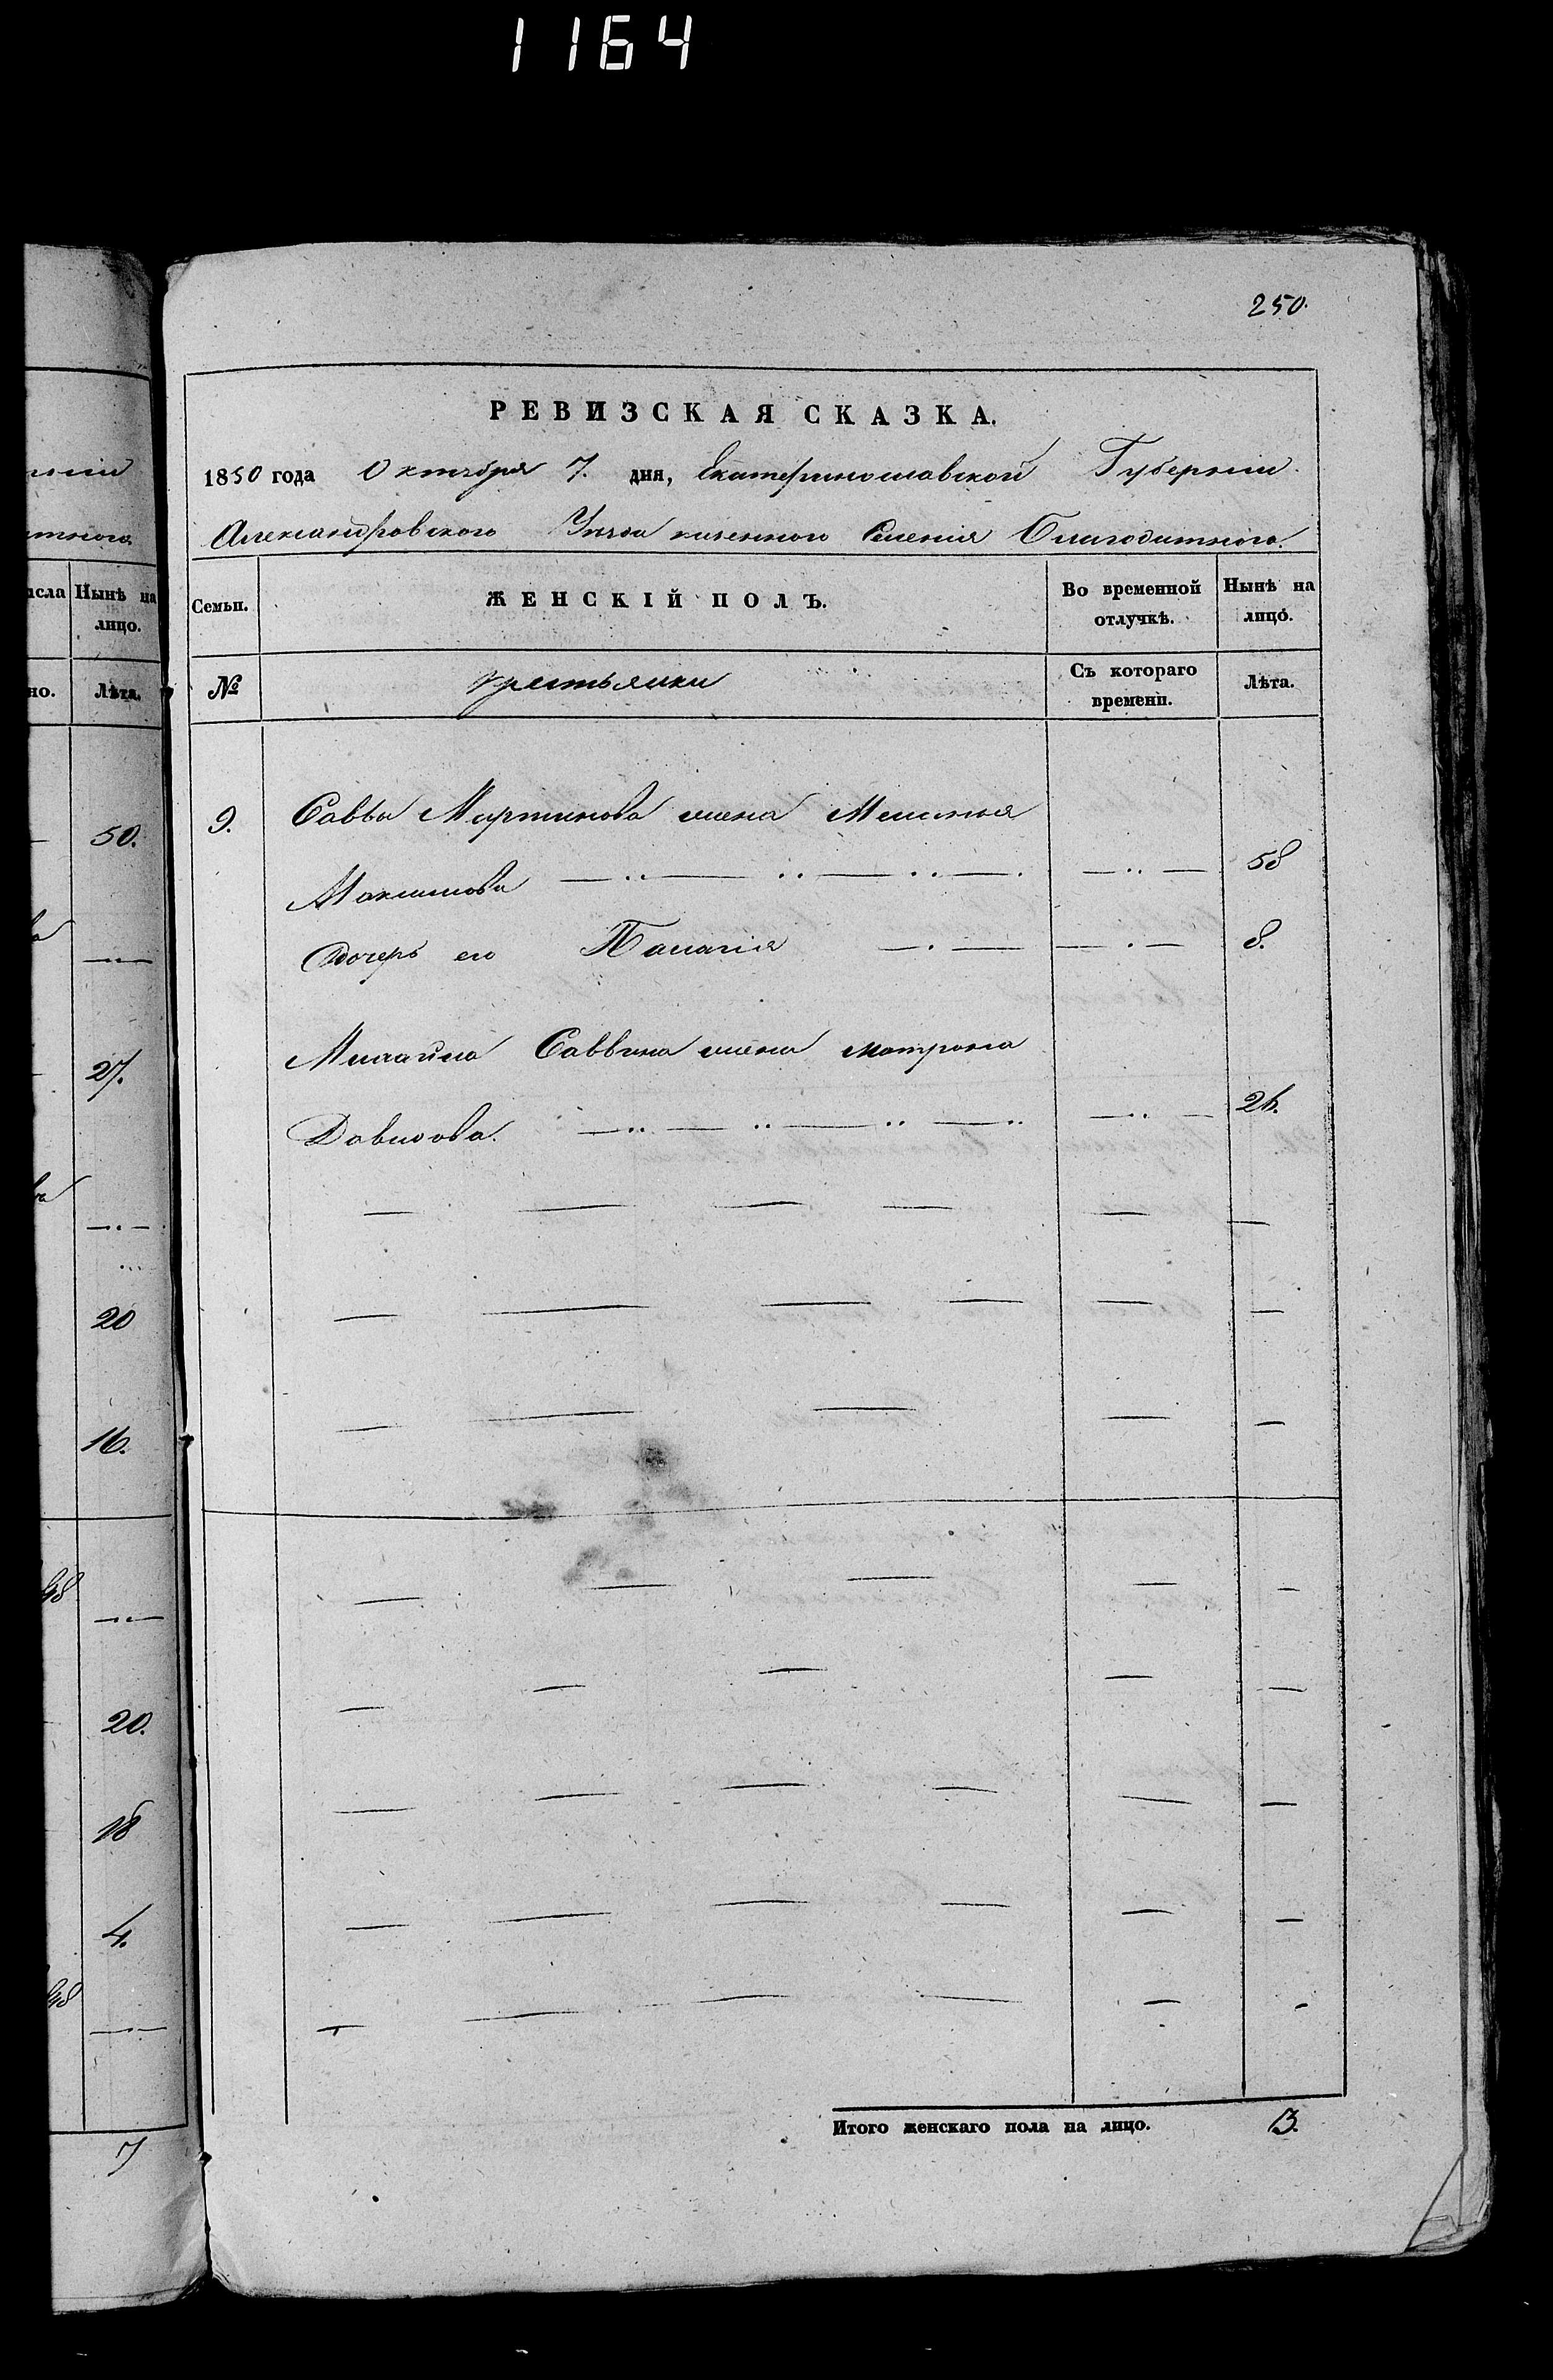 1164
250.
РЕВИЗСКАЯ СКАЗКА.
1850 года Октября 7. дня, Екатеринославской Губернии
Александровского Уѣзда казенного Селенія Благодатного.
Семьи. ЖЕНСКІЙ ПОЛЪ. Во временной отлучкѣ. Нынѣ на лицо.
№ крестьянки Съ котораго времени. Лѣта.
9. Саввы Мартинова жена Меланія
Максимова 58
Дочерь его Палагія 8.
Михайла Саввина жена Матрона
Давидова. 26.
Итого женскаго пола на лицо. 3.
исла Нынѣ на лицо.
но. Лѣта.
50.
27.
20
16.
48
20.
18
4.
48
7